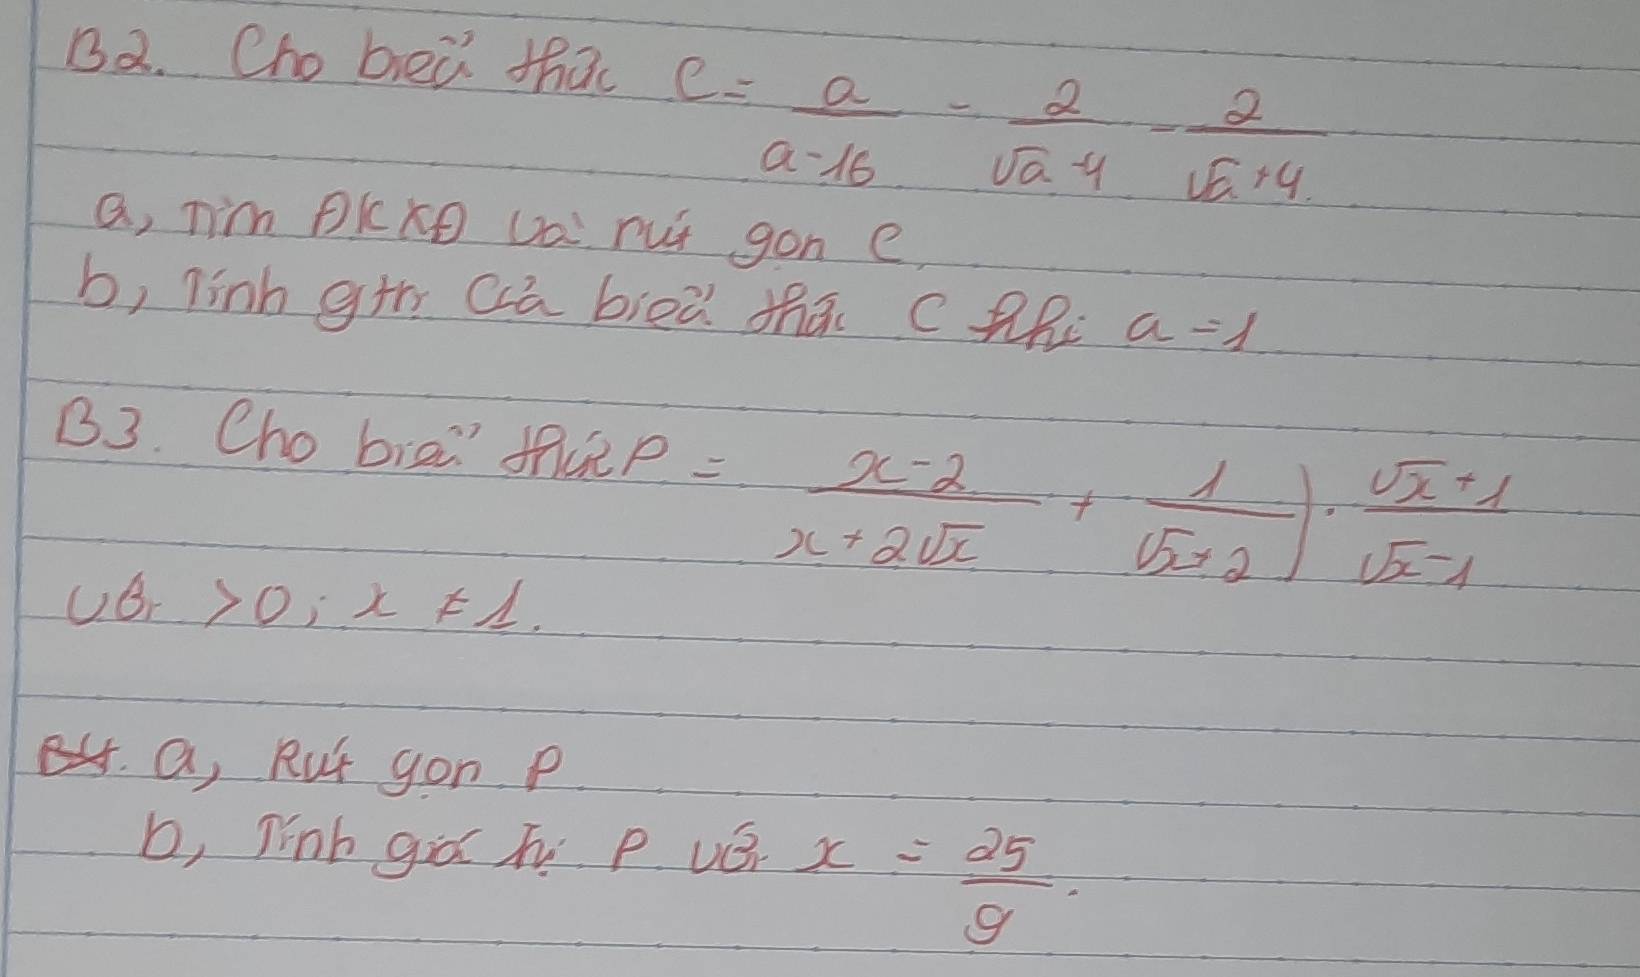 B2. Cho biểu thức C = a/(a-16) - 2/(√a-4) - 2/(√a+4).
a, Tìm ĐKXĐ và rút gọn C
b, Tính gtrị của biểu thức C khi a = 1
B3. Cho biểu thức P = (x-2)/(x+2√x) + 1/(√x+2)) . (√x+1)/(√x-1)
với >0; x ≠ 1.
a, Rút gọn P
b, Tính giá trị P với x = 25/9.